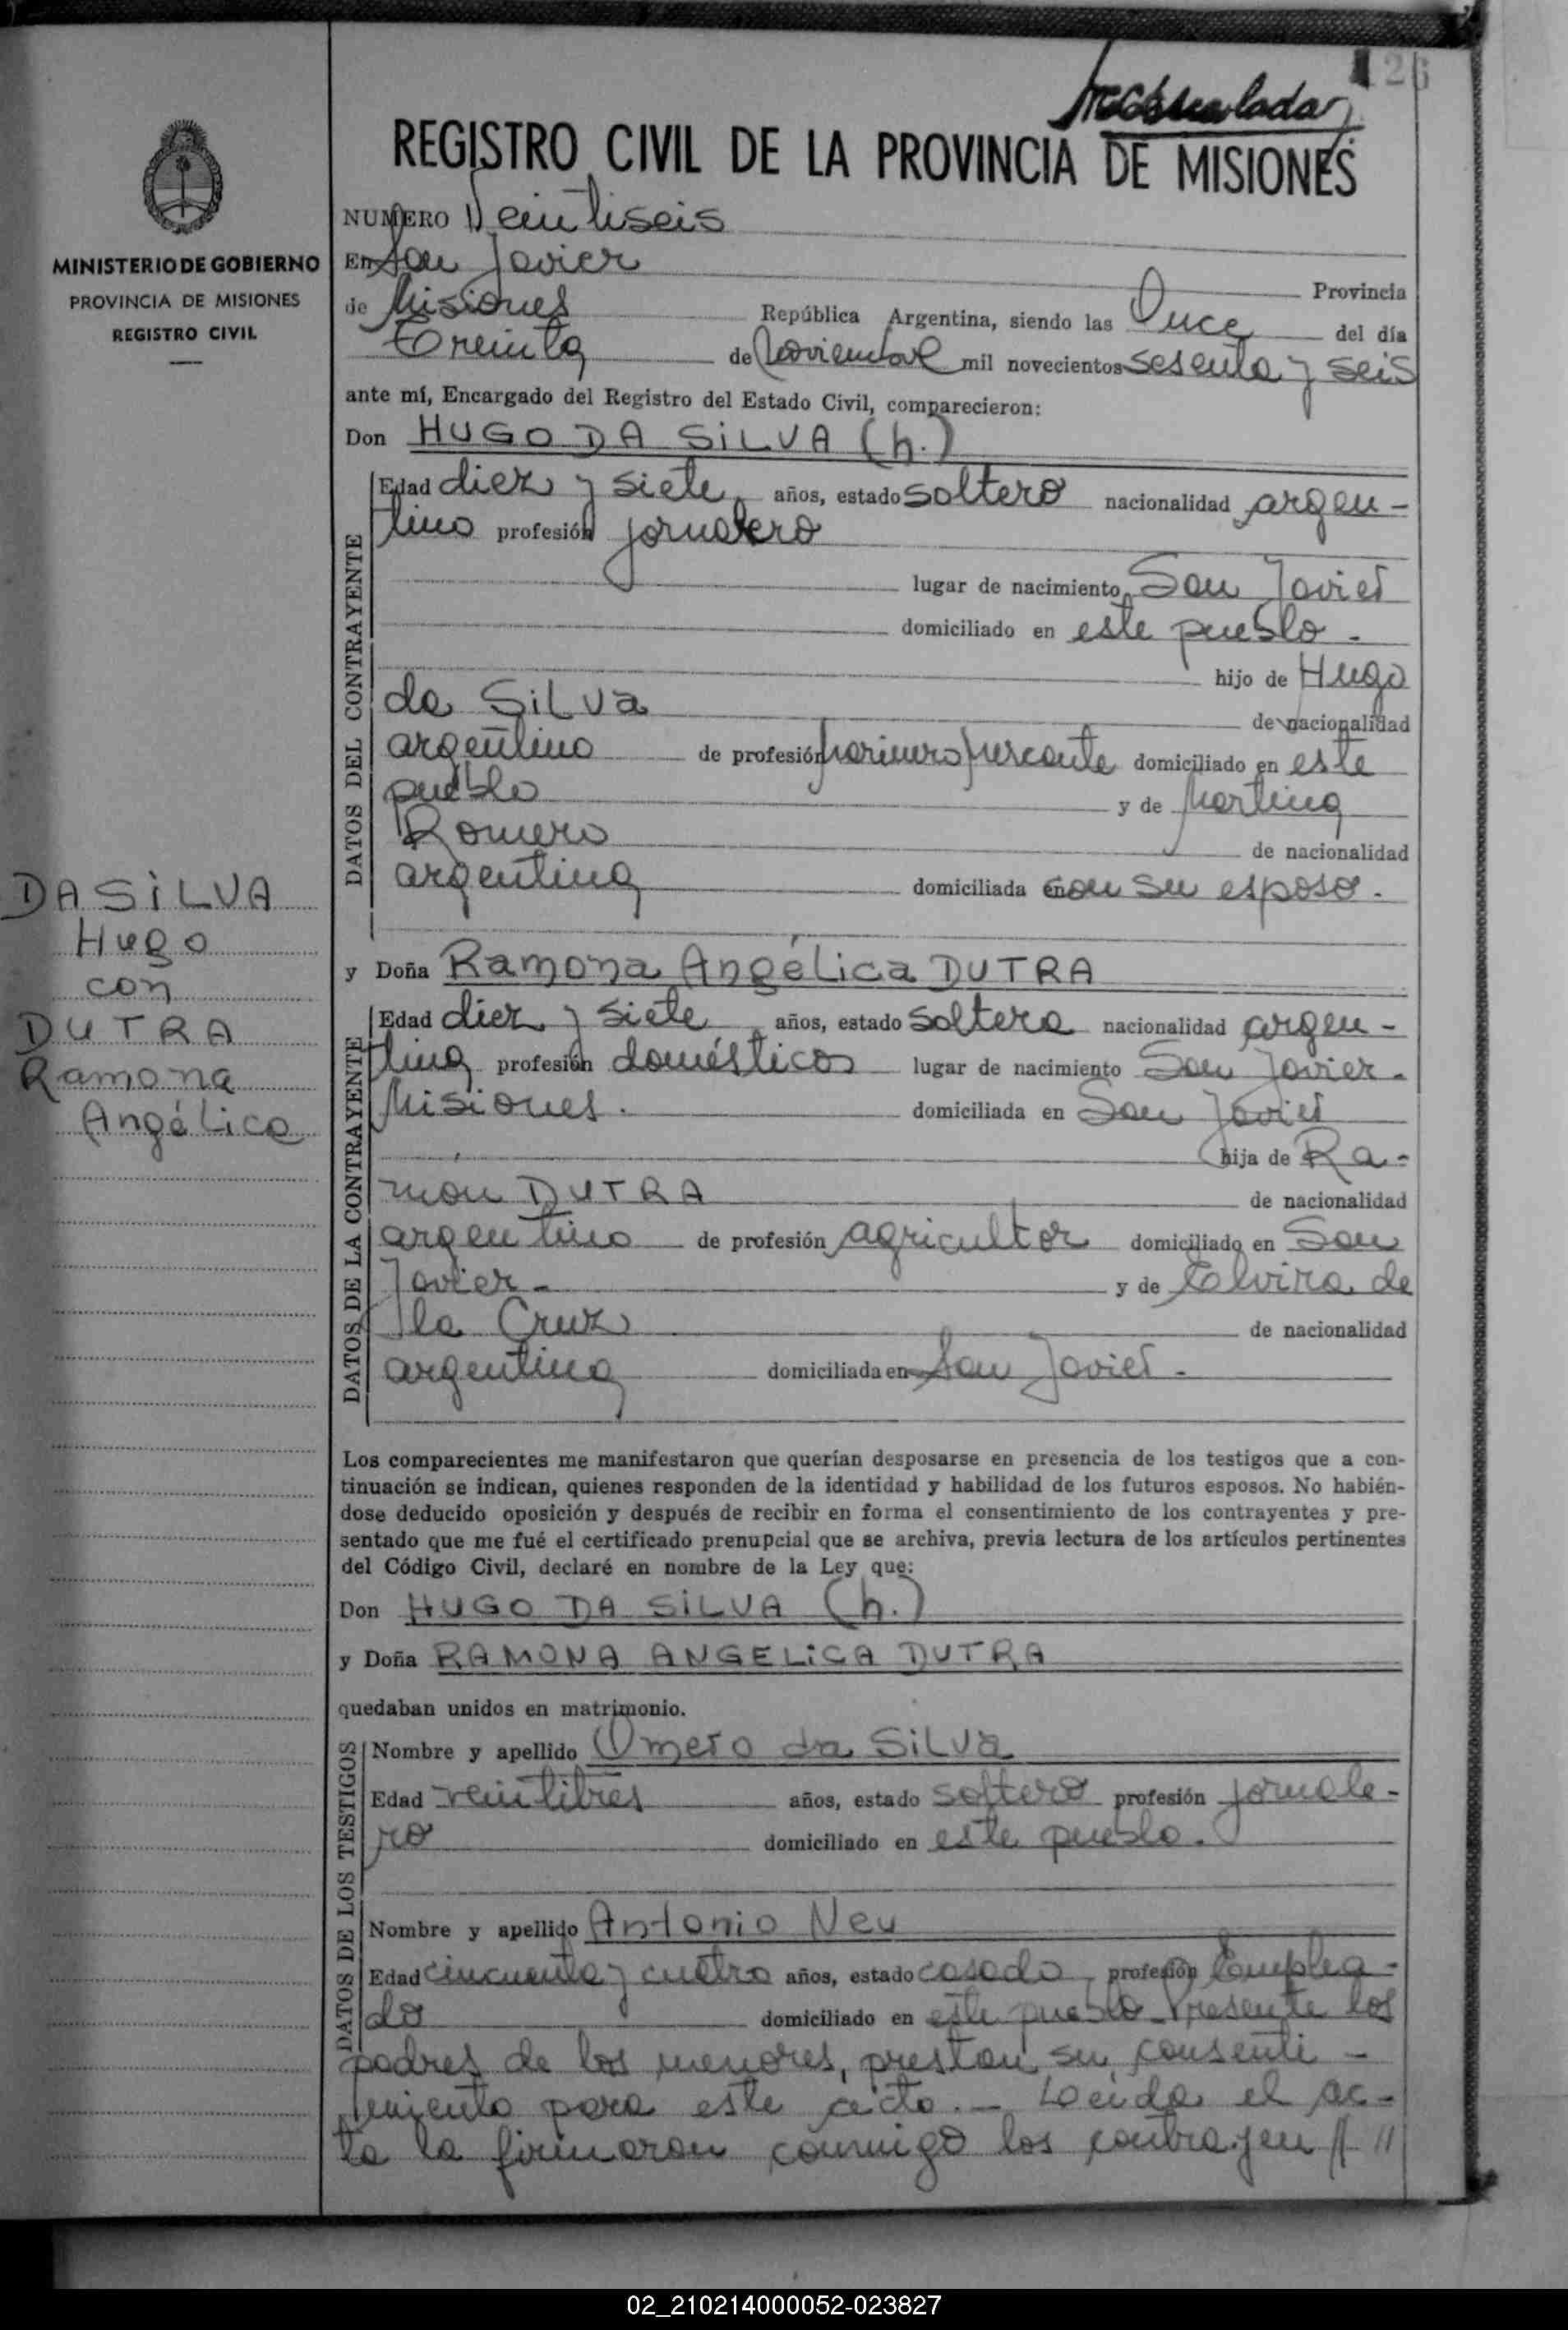 26
REGISTRO CIVIL DE LA PROVINCIA DE MISIONES
MINISTERIO DE GOBIERNO
PROVINCIA DE MISIONES
REGISTRO CIVIL
NUMERO Veintiseis
En San Javier Provincia
de Misiones República Argentina, siendo las Once del día
Treinta de Noviembre mil novecientos sesenta y seis
ante mí, Encargado del Registro del Estado Civil, comparecieron:
Don HUGO DA SILVA (h.)
DATOS DEL CONTRAYENTE
Edad diez y siete años, estado soltero nacionalidad argen-
tino profesión jornalero
lugar de nacimiento San Javier
domiciliado en este pueblo.
hijo de Hugo
da SILVA de nacionalidad
argentino de profesión marinero mercante domiciliado en este
pueblo y de Martina
Romero de nacionalidad
argentina domiciliada con su esposo.
DA SILVA
Hugo
con
DUTRA
Ramona
Angélica
y Doña Ramona Angélica DUTRA
DATOS DE LA CONTRAYENTE
Edad diez y siete años, estado soltera nacionalidad argen-
tina profesión domésticos lugar de nacimiento San Javier-
Misiones. domiciliada en San Javier
hija de Ra-
mon DUTRA de nacionalidad
argentino de profesión agricultor domiciliado en San
Javier- y de Elvira de
la Cruz de nacionalidad
argentina domiciliada en San Javier-
Los comparecientes me manifestaron que querían desposarse en presencia de los testigos que a con-
tinuación se indican, quienes responden de la identidad y habilidad de los futuros esposos. No habién-
dose deducido oposición y después de recibir en forma el consentimiento de los contrayentes y pre-
sentado que me fué el certificado prenupcial que se archiva, previa lectura de los artículos pertinentes
del Código Civil, declaré en nombre de la Ley que:
Don HUGO DA SILVA (h.)
y Doña RAMONA ANGELICA DUTRA
quedaban unidos en matrimonio.
DATOS DE LOS TESTIGOS
Nombre y apellido Omero da SILVA
Edad veintitres años, estado soltero profesión jornale-
ro domiciliado en este pueblo.
Nombre y apellido Antonio Neu
Edad cincuenta y cuatro años, estado casado, profesión Emplea-
do domiciliado en este pueblo. Presente los
padres de los menores, prestan su consenti-
miento para este acto.- Leida el ac-
ta la firmaron conmigo los contrayen//
02_210214000052-023827